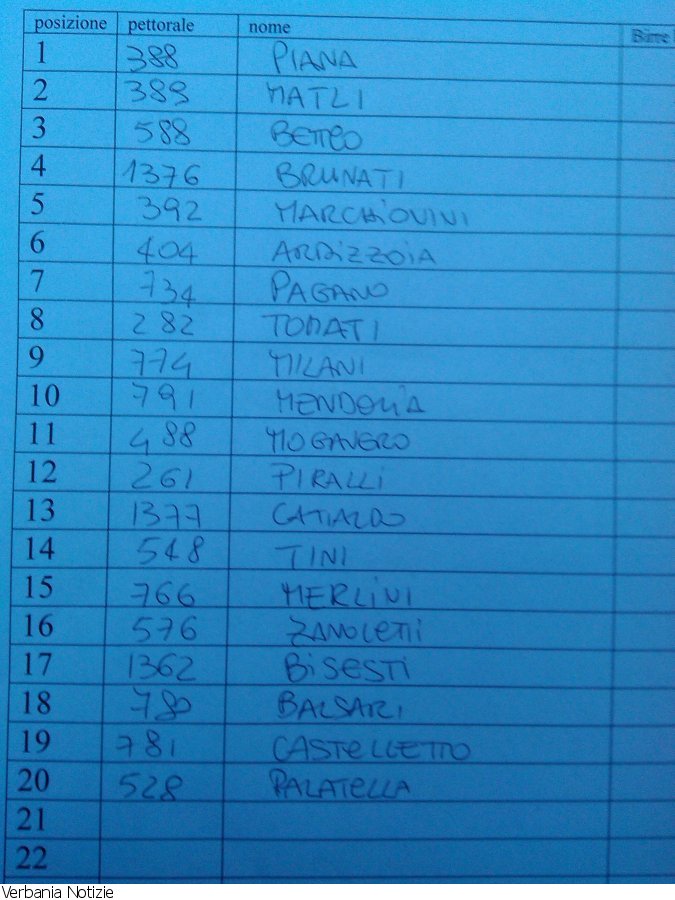 posizione pettorale nome Birre
1 388 PIANA
2 389 MATLI
3 588 BETTEO
4 1376 BRUNATI
5 392 MARCHIOVINI
6 404 ARDIZZOIA
7 734 PAGANO
8 282 TOMATI
9 774 MILANI
10 791
11 488 MOGAVERO
12 261 PIRALLI
13 1377 CATIALDO
14 548 TINI
15 766 MERLINI
16 576 ZANOLETTI
17 1362 BISESTI
18 780 BALSARI
19 781 CASTELLETTO
20 528 PALATELLA
21
22
Verbania Notizie